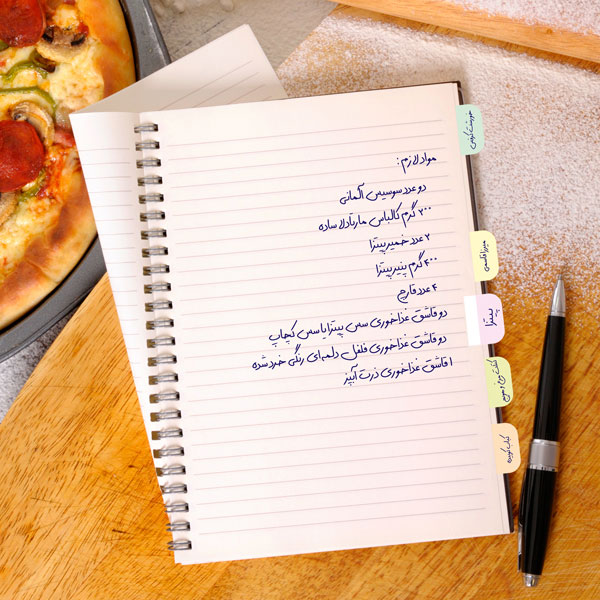 مواد لازم:
دو عدد سوسیس آلمانی
۲۰۰ گرم کالباس مارتادلا ساده
۲ عدد خمیر پیتزا
۴۰۰ گرم پنیر پیتزا
۴ عدد قارچ
دو قاشق غذاخوری سس پیتزا یا سس کچاپ
دو قاشق غذاخوری فلفل دلمه‌ای رنگی خرد شده
۱ قاشق غذاخوری ذرت آبپز
میرزا قاسمی
پیتزا
کباب کوبیده